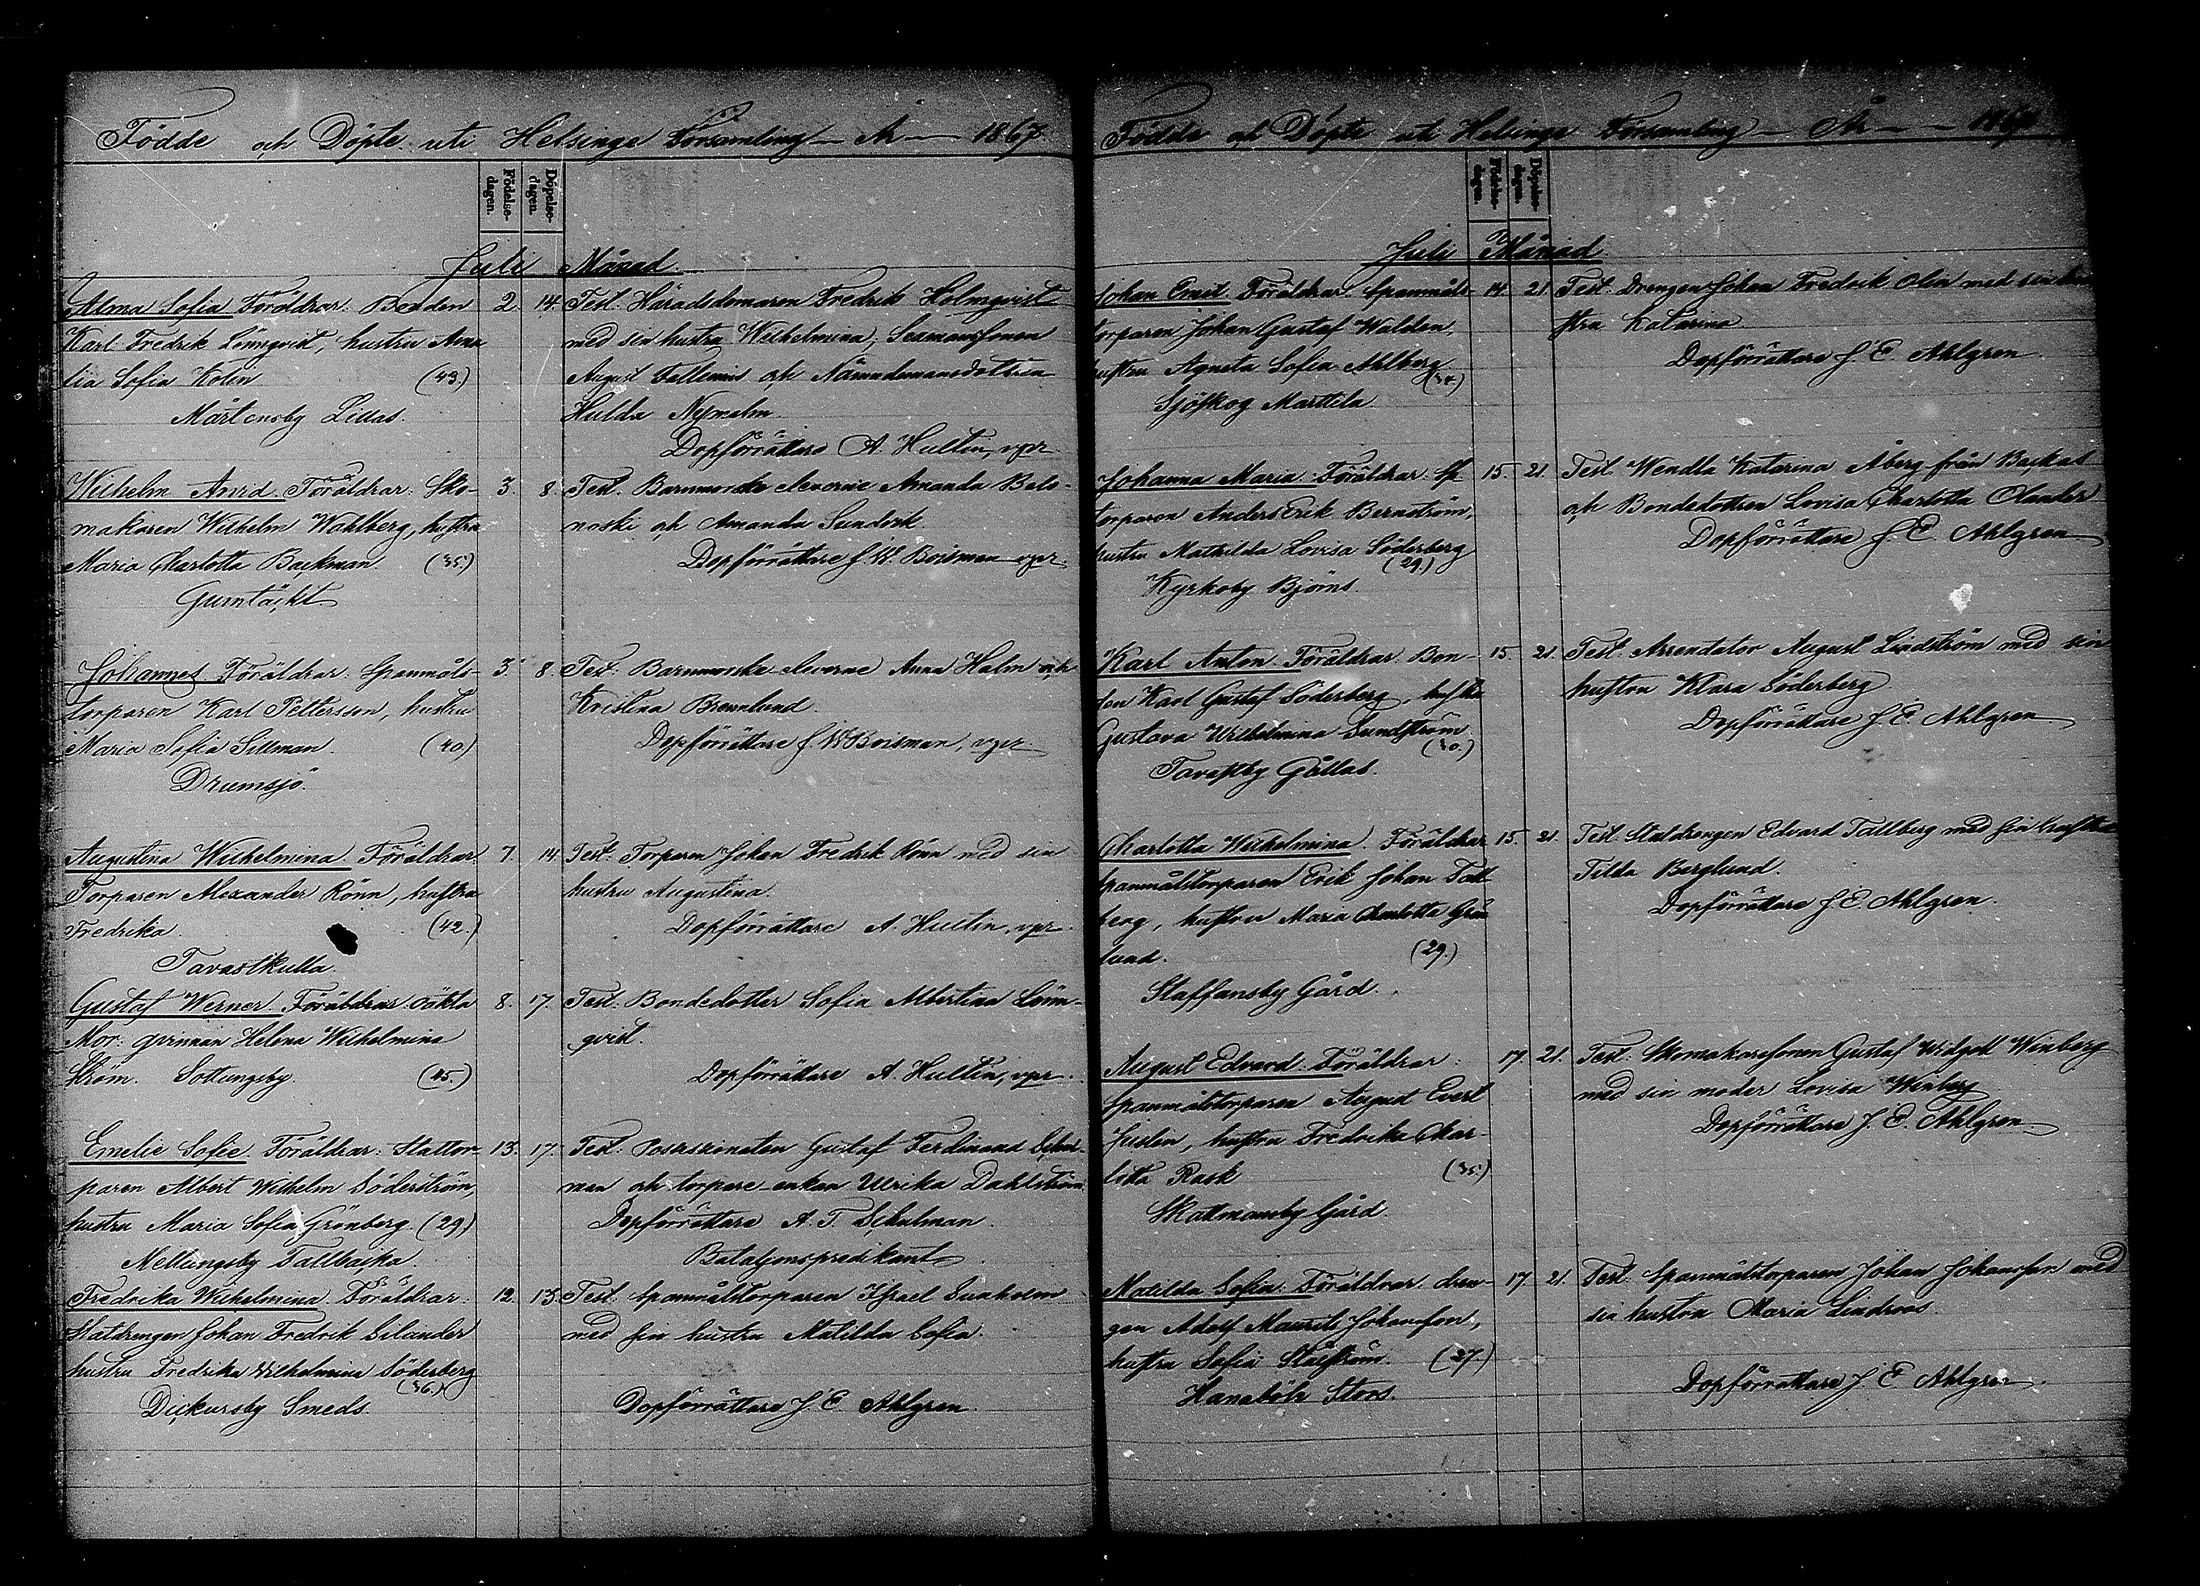 Födde och Döpte uti Helsinge Församling År 1867.
Födelse-
dagen.
Döpelse-
dagen.
Juli Månad.
Alma Sofia Föräldrar: Bonden 2. 14. Test. Häradsdomaren Fredrik Holmqvist
Karl Fredrik Lönnqvist, hustru Ama med sin hustru Wilhelmina,
lia Sofia Kolin (43.) August och Nämndemansdottren
Mårtensby Lillas. Hulda Nymalm.
Dopförrättare A. Hultin, vpr
Wilhelm Arvid Föräldrar: Sko- 3. 8. Test. Barnmorske eleverne Amanda Belo-
makaren Wilhelm Wahlberg, hustru noski och Amanda Sundvik.
Maria Charlotta Backman. (35.) Dopförrättare J. W. Boisman vpr.
Gumtäckt
Johannes Föräldrar: Spanmåls- 3. 8. Test. Barnmorske eleverne Anna Holm och
torparen Karl Pettersson, hustru Kristina Brennlund.
Maria Sofia Sellman. (40) Dopförrättare J. W. Boisman, vpr.
Drumsjö.
Augustina Wilhelmina Föräldrar 7. 14. Test. Torparen Johan Fredrik Rönn med sin
Torparen Alexander Rönn, hustru hustru Augustina.
Fredrika. (42.) Dopförrättare A. Hultin, vpr.
Tavastkulla.
Gustaf Werner Föräldrar: oäkta 8. 17. Test. Bondedotter Sofia Albertina Lönn-
Mor: qvinnan Helena Wilhelmina qvist.
Ström. Sottungsby. (25.) Dopförrättare A. Hultin, vpr.
Emelie Sofie Föräldrar: Stattor- 13. 17. Test. Possessionaten Gustaf Ferdinand Schul-
paren Albert Wilhelm Söderström, man och torpare enkan Ulrika Dahlström
hustru Maria Sofia Grönberg. (29) Dopförrättare A. T. Schulman.
Mellungsby Tallbacka. Bataljonspredikant
Fredrika Wilhelmina Föräldrar: 12. 15. Test. Spanmålstorparen Israel Sunholm
Statdrengen Johan Fredrik Silander med sin hustru Matilda Sofia.
hustru Fredrika Wilhelmina Söderberg
(36.)
Dickursby Smeds. Dopförrättare J. E. Ahlgren.
Födde och Döpte uti Helsinge Församling År 1867
Födelse-
dagen.
Döpelse-
dagen.
Juli Månad
Johan Emil Föräldrar: Spanmåls- 14. 21. Test. Drengen Johan Fredrik Olin med sin hu
torparen Johan Gustaf Walden, stru Katarina
hustru Agneta Sofia Ahlberg Dopförrättare J. E. Ahlgren.
(34.)
Sjöskog Marttila.
Johanna Maria Föräldrar: Sp. 15. 21. Test. Wendla Katarina Åberg från Backas
torparen Anders Erik Bernström, och Bondedottren Lovisa Charlotta Olander
hustru Mathilda Lovisa Söderberg Dopförrättare J. E. Ahlgren
(29.)
Kyrkoby Björns.
Karl Anton Föräldrar: Bon- 15. 21. Test. Arrendator August Lindström med sin
den Karl Gustaf Söderberg, hustru hustru Klara Söderberg
Gustava Wilhelmina Sundström Dopförrättare J. E. Ahlgren
(30.)
Tavastby Gällas.
Charlotta Wilhelmina. Föräldrar 15. 21. Test. Statdrengen Edvard Tallberg med sin hustru
spanmålstorparen Erik Johan Tall Tilda Berglund.
berg, hustru Maria Charlotta Grön Dopförrättare J. E. Ahlgren.
lund. (29.)
Staffansby Gård.
August Edvard Föräldrar: 17. 21. Test. Skomakaresonen Gustaf Winberg
Spanmålstorparen August Evert med sin moder Lovisa Winberg
hustru Fredrika Char- Dopförrättare J. E. Ahlgren
lotta Rask (35.)
Skattmansby Gård.
Matilda Sofia Föräldrar: dren- 17. 21. Test. Spanmålstorparen Johan Johansson med
gen Adolf Maurits Johansson, sin hustru Maria Lindroos.
hustru Sofia (27.)
Hanaböle Stors. Dopförrättare J. E. Ahlgren.